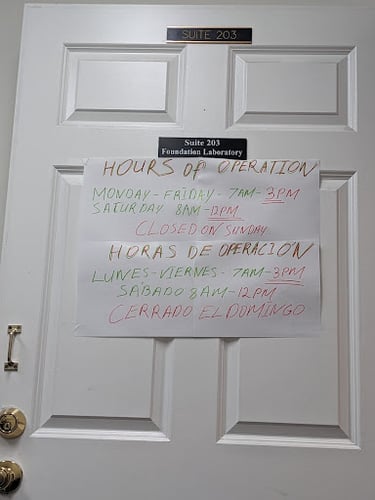 SUITE 203
Suite 203
Foundation Laboratory
HOURS OF OPERATION
MONDAY - FRIDAY - 7AM - 3PM
SATURDAY 8AM - 12PM
CLOSED ON SUNDAY
HORAS DE OPERACIÓN
LUNES - VIERNES - 7AM - 3PM
SÁBADO 8AM - 12PM
CERRADO EL DOMINGO